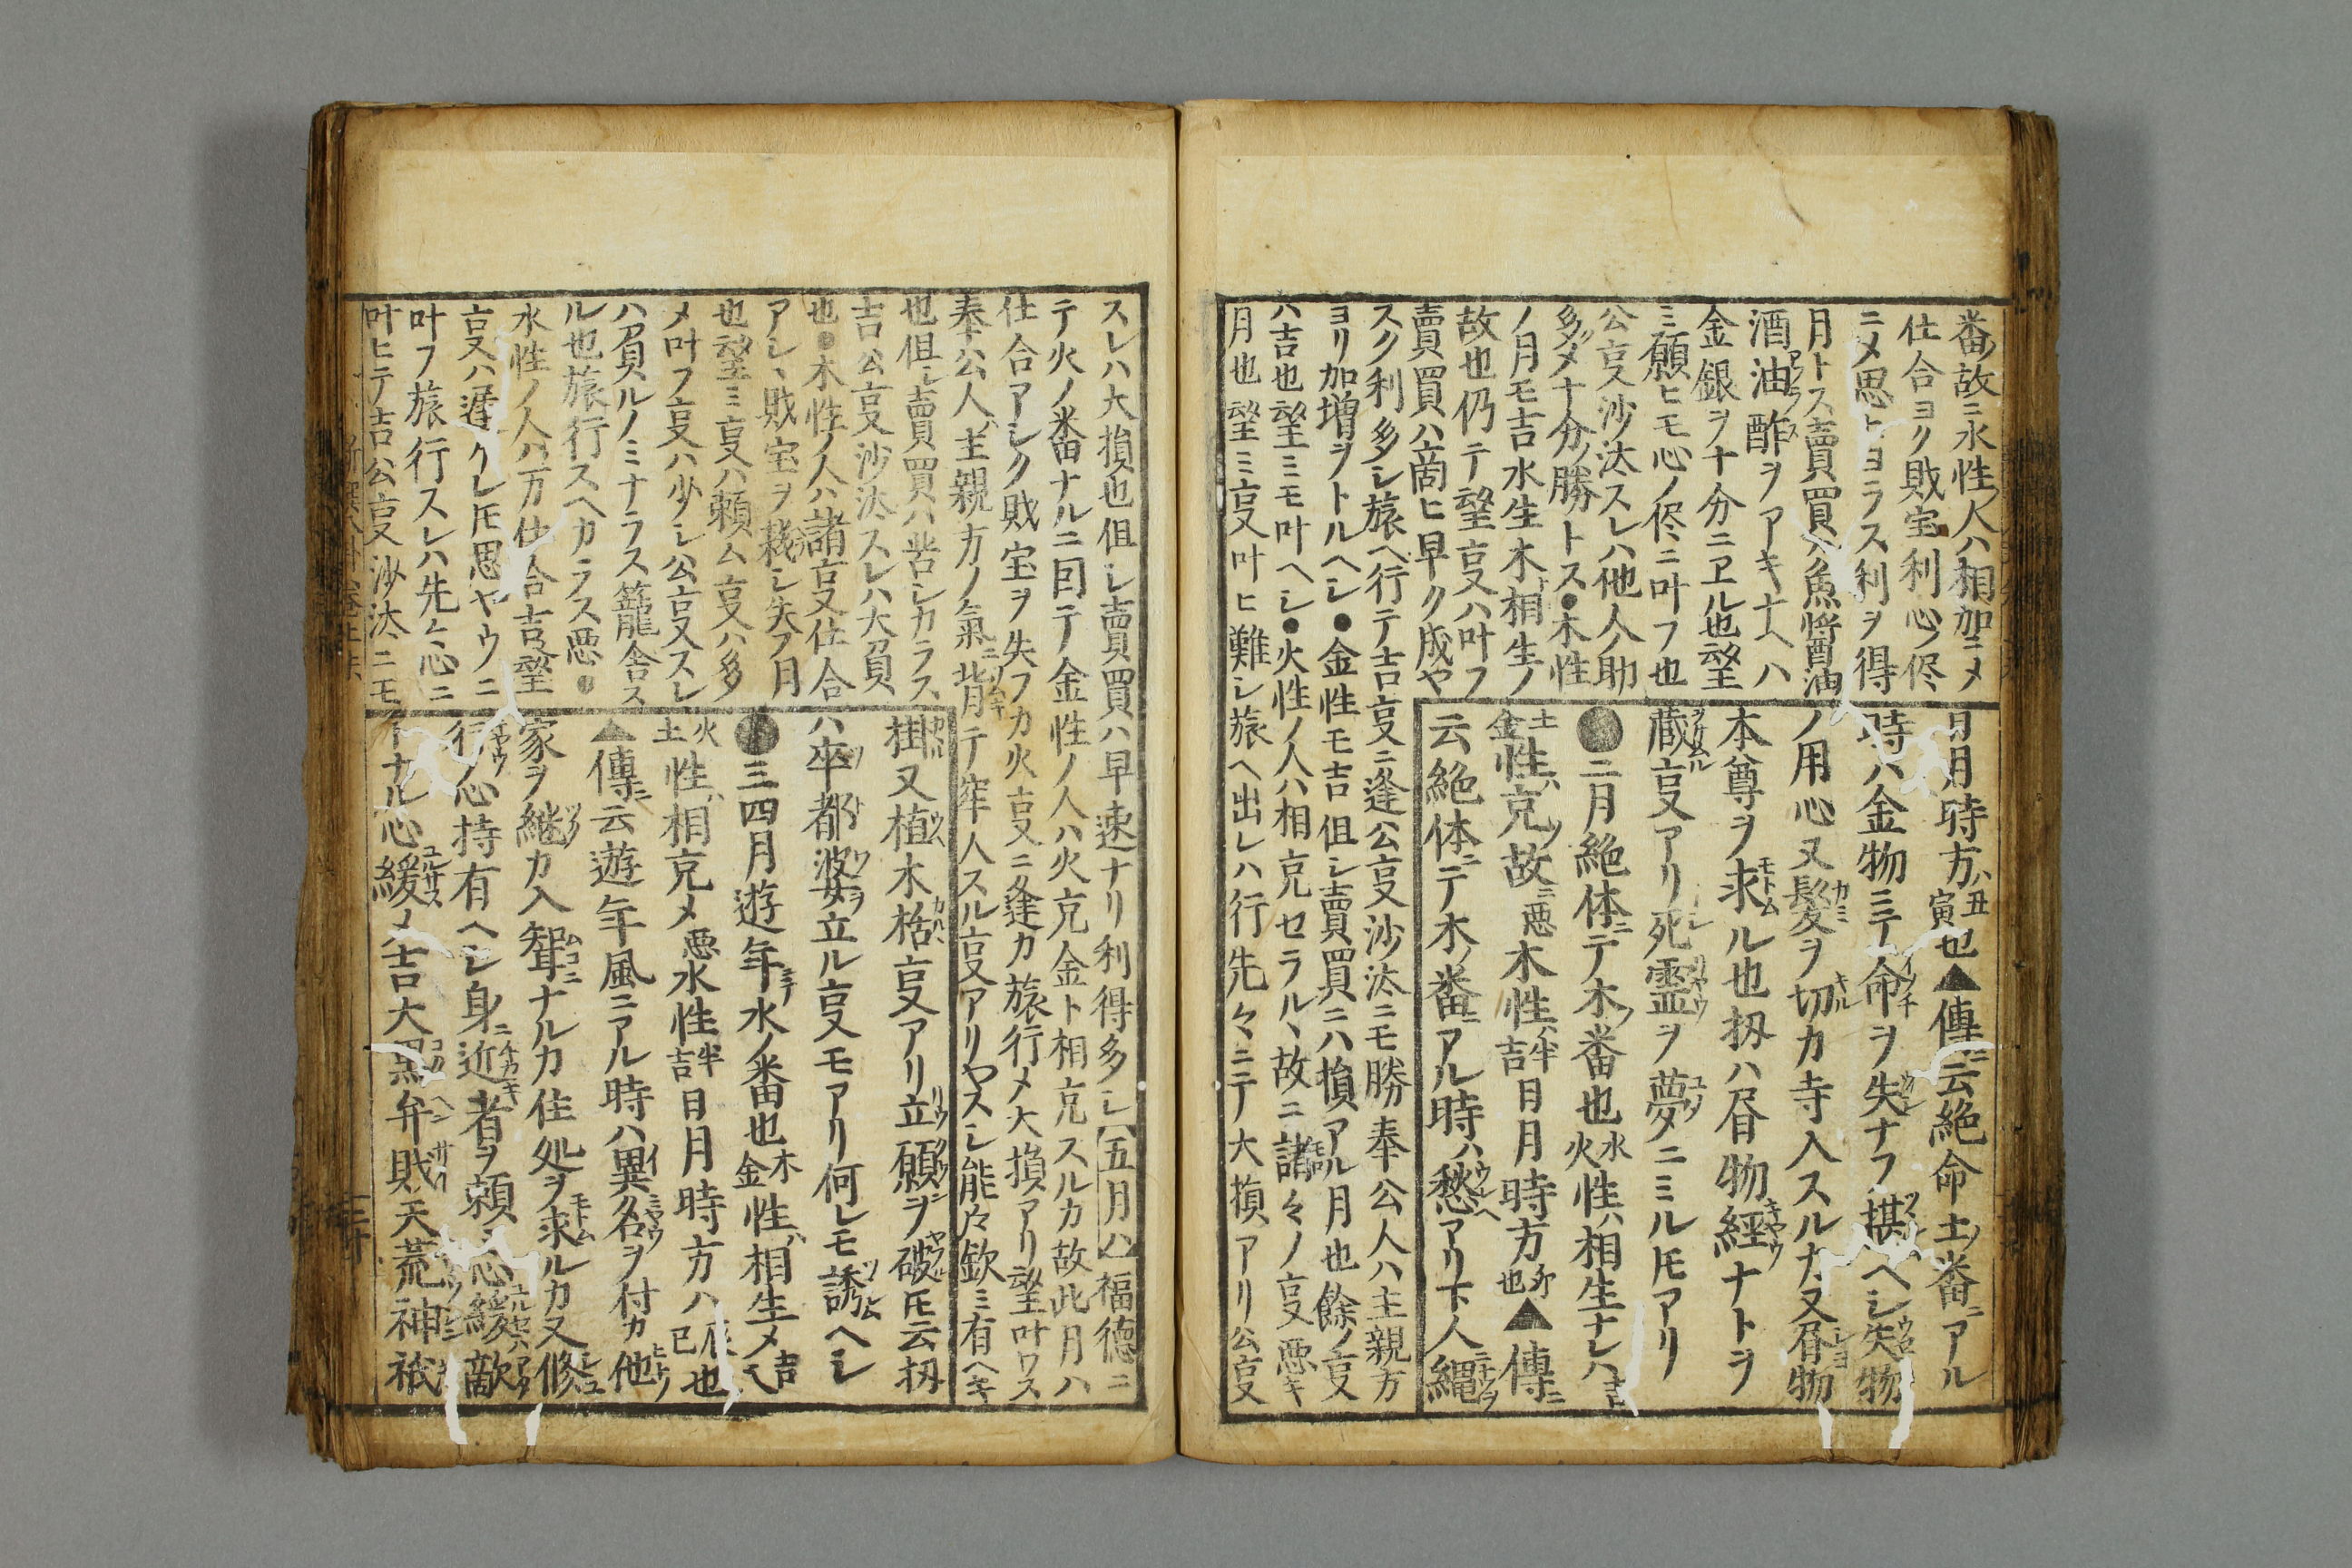 番ノ故ニ水性ノ人ハ相加ニメ
仕合ヨク財宝利心ノ侭
ニメ思ヒヨラス利ヲ得
月トス賣買ハ魚醬油
酒油酢ヲアキナヘハ
金銀ヲ十分ニヱル也望
ミ願ヒモ心ノ侭ニ叶フ也
公叓沙汰スレハ他人ノ助
多メ十分ノ勝トス●木性
ノ月モ吉水生木相生ノ
故也仍テ望叓ハ叶フ
賣買ハ啇ヒ早ク成ヤ
スク利多シ旅ヘ行テ吉叓ニ逢公叓沙汰ニモ勝奉公人ハ主親方
ヨリ加増ヲトルヘシ●金性モ吉但シ賣買ニハ損アル月也餘ノ叓
ハ吉也望ミモ叶ヘシ●火性ノ人ハ相克セラルヽ故ニ諸々ノ叓悪キ
月也望ミ叓叶ヒ難シ旅ヘ出レハ行先々ニテ大損アリ公叓
日月時方ハ丑寅也▲傳ニ云絶命土ノ番ニアル
時ハ金物ミテ命ヲ失ナフ棋ヘシ失物
ノ用心又髮ヲ切カ寺入スルカ又昏物
本尊ヲ求ル也扨ハ昏物經ナトヲ
蔵叓アリ死霊ヲ夢ニミルモアリ
●二月絶体ニテ木ノ番也水火性ハ相生ナレハ
土金性ハ克ノ故ニ悪木性ハ半吉日月時方卯也▲傳ニ
云絶体ニテ木ノ番ニアル時ハ愁アリ下人繩ヲ
スレハ大損也但シ賣買ハ早速ナリ利得多シ【五月ハ】福德ニ
テ火ノ番ナルニ回テ金性ノ人ハ火克金ト相克スルカ故此月ハ
仕合アシク財宝ヲ失フカ火叓ニ逢カ旅行メ大損アリ望叶ワス
奉公人ハ主親方ノ氣ニ背テ牢人スル叓アリヤスシ能々欽ミ有ヘキ
也但シ賣買ハ苦シカラス
吉公叓沙汰スレハ大負
也●木性ノ人ハ諸叓仕合
アシヽ財宝ヲ耗シ失フ月
也望ミ叓ハ頼ム叓ハ多
メ叶フ叓ハ少シ公叓スレ
ハ負ルノミナラス籠舎ス
ル也旅行スヘカラス悪●
水性ノ人ハ万仕合吉望
叓ハ遅クレ𪜈思ヤウニ
叶フ旅行スレハ先々心ニ
叶ヒテ吉公叓沙汰ニモ
掛又植木栝叓アリ立願ヲ破𪜈云扨
ハ卒都婆立ル叓モアリ何レモ誘ヘシ
●三四月遊年ミテ水ノ番也木金性ハ相生メ大吉
火土性ハ相克メ悪水性半吉日月時方ハ辰巳也
▲傳ニ云遊年風ニアル時ハ異名ヲ付カ他
家ヲ継カ入聟ナルカ住処ヲ求ルカ又修
行心持有ヘシ身ニ近者ヲ頼
ナル心緩メ吉大黒弁財天荒神祇